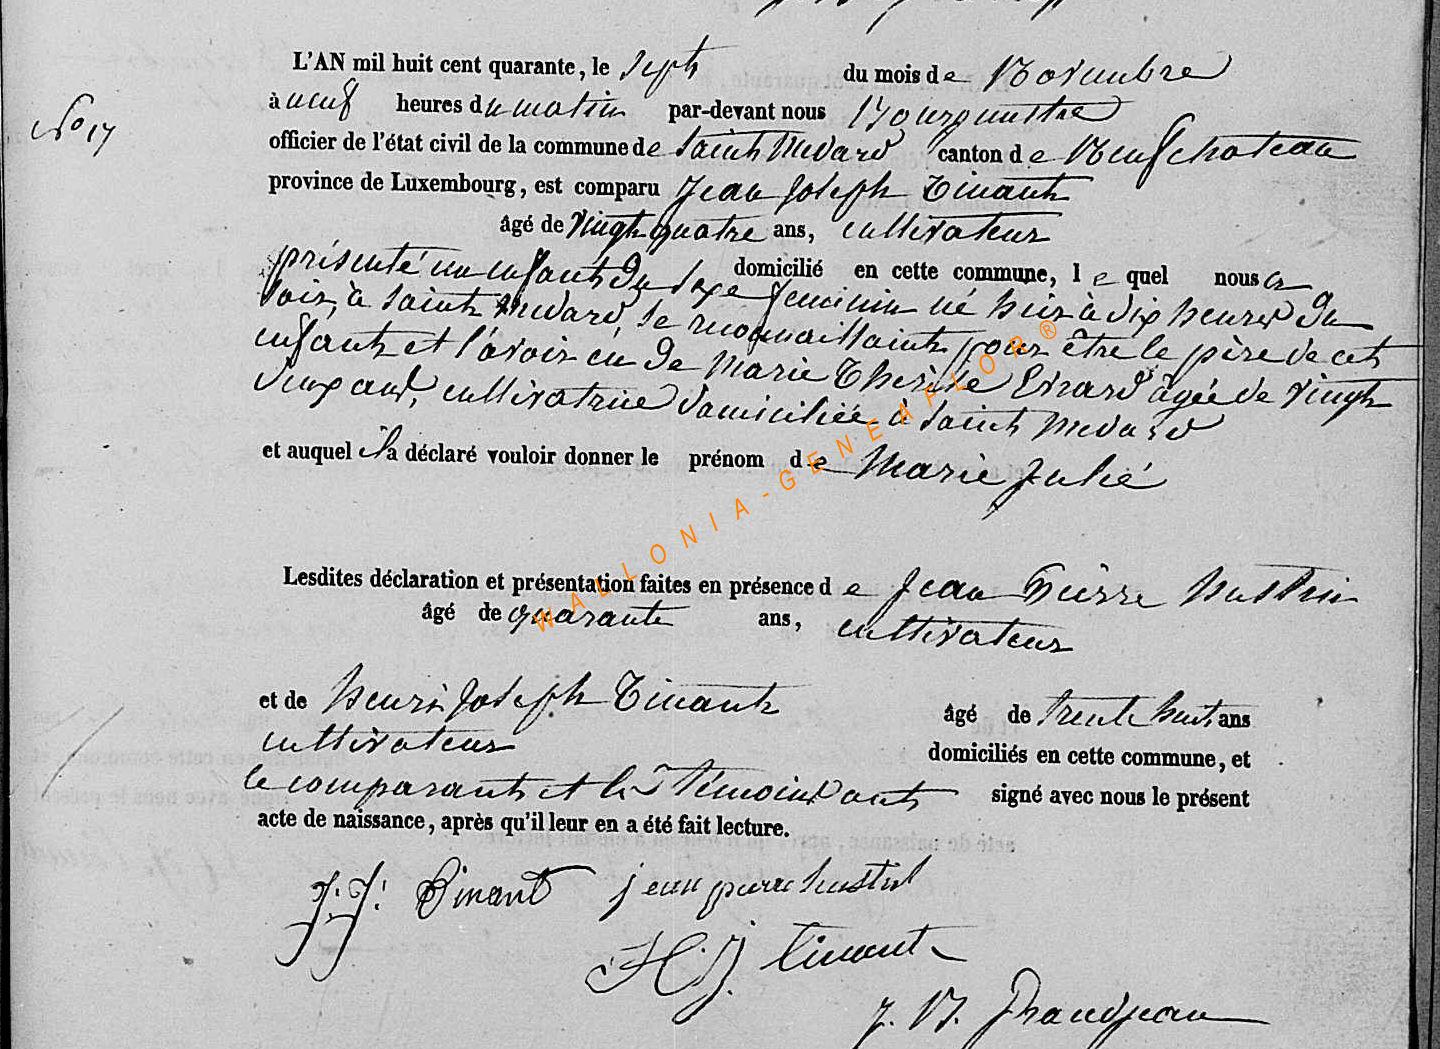 L'AN mil huit cent quarante, le Sept du mois de Novembre
No 17
à neuf heures du matin par-devant nous Bourguemstre
officier de l'état civil de la commune de Saint Médard canton de Neufchateau
province de Luxembourg, est comparu Jean Joseph Tinant
âgé de vingt quatre ans, cultivateur
domicilié en cette commune, lequel nous a
présenté un enfant du sexe feminin né hier à dix heures du
soir, à Saint Médard, se reconnaissant pour être le père de cet
enfant et l'avoir eu de Marie Thérèse Evrard âgée de vingt
deux ans, cultivatrice domiciliée à Saint Médard
et auquel il a déclaré vouloir donner le prénom de Marie Julie
WALLONIA-GENEAFLOR®
Lesdites déclaration et présentation faites en présence de Jean Pierre Hustin
âgé de quarante ans, cultivateur
et de Henri Joseph Tinant âgé de trente huit ans
cultivateur domiciliés en cette commune, et
le comparant et les témoins ont signé avec nous le présent
acte de naissance, après qu'il leur en a été fait lecture.
J. J. Tinant jean pierre hustin
H. J. Tinant
J. B. Grandjean